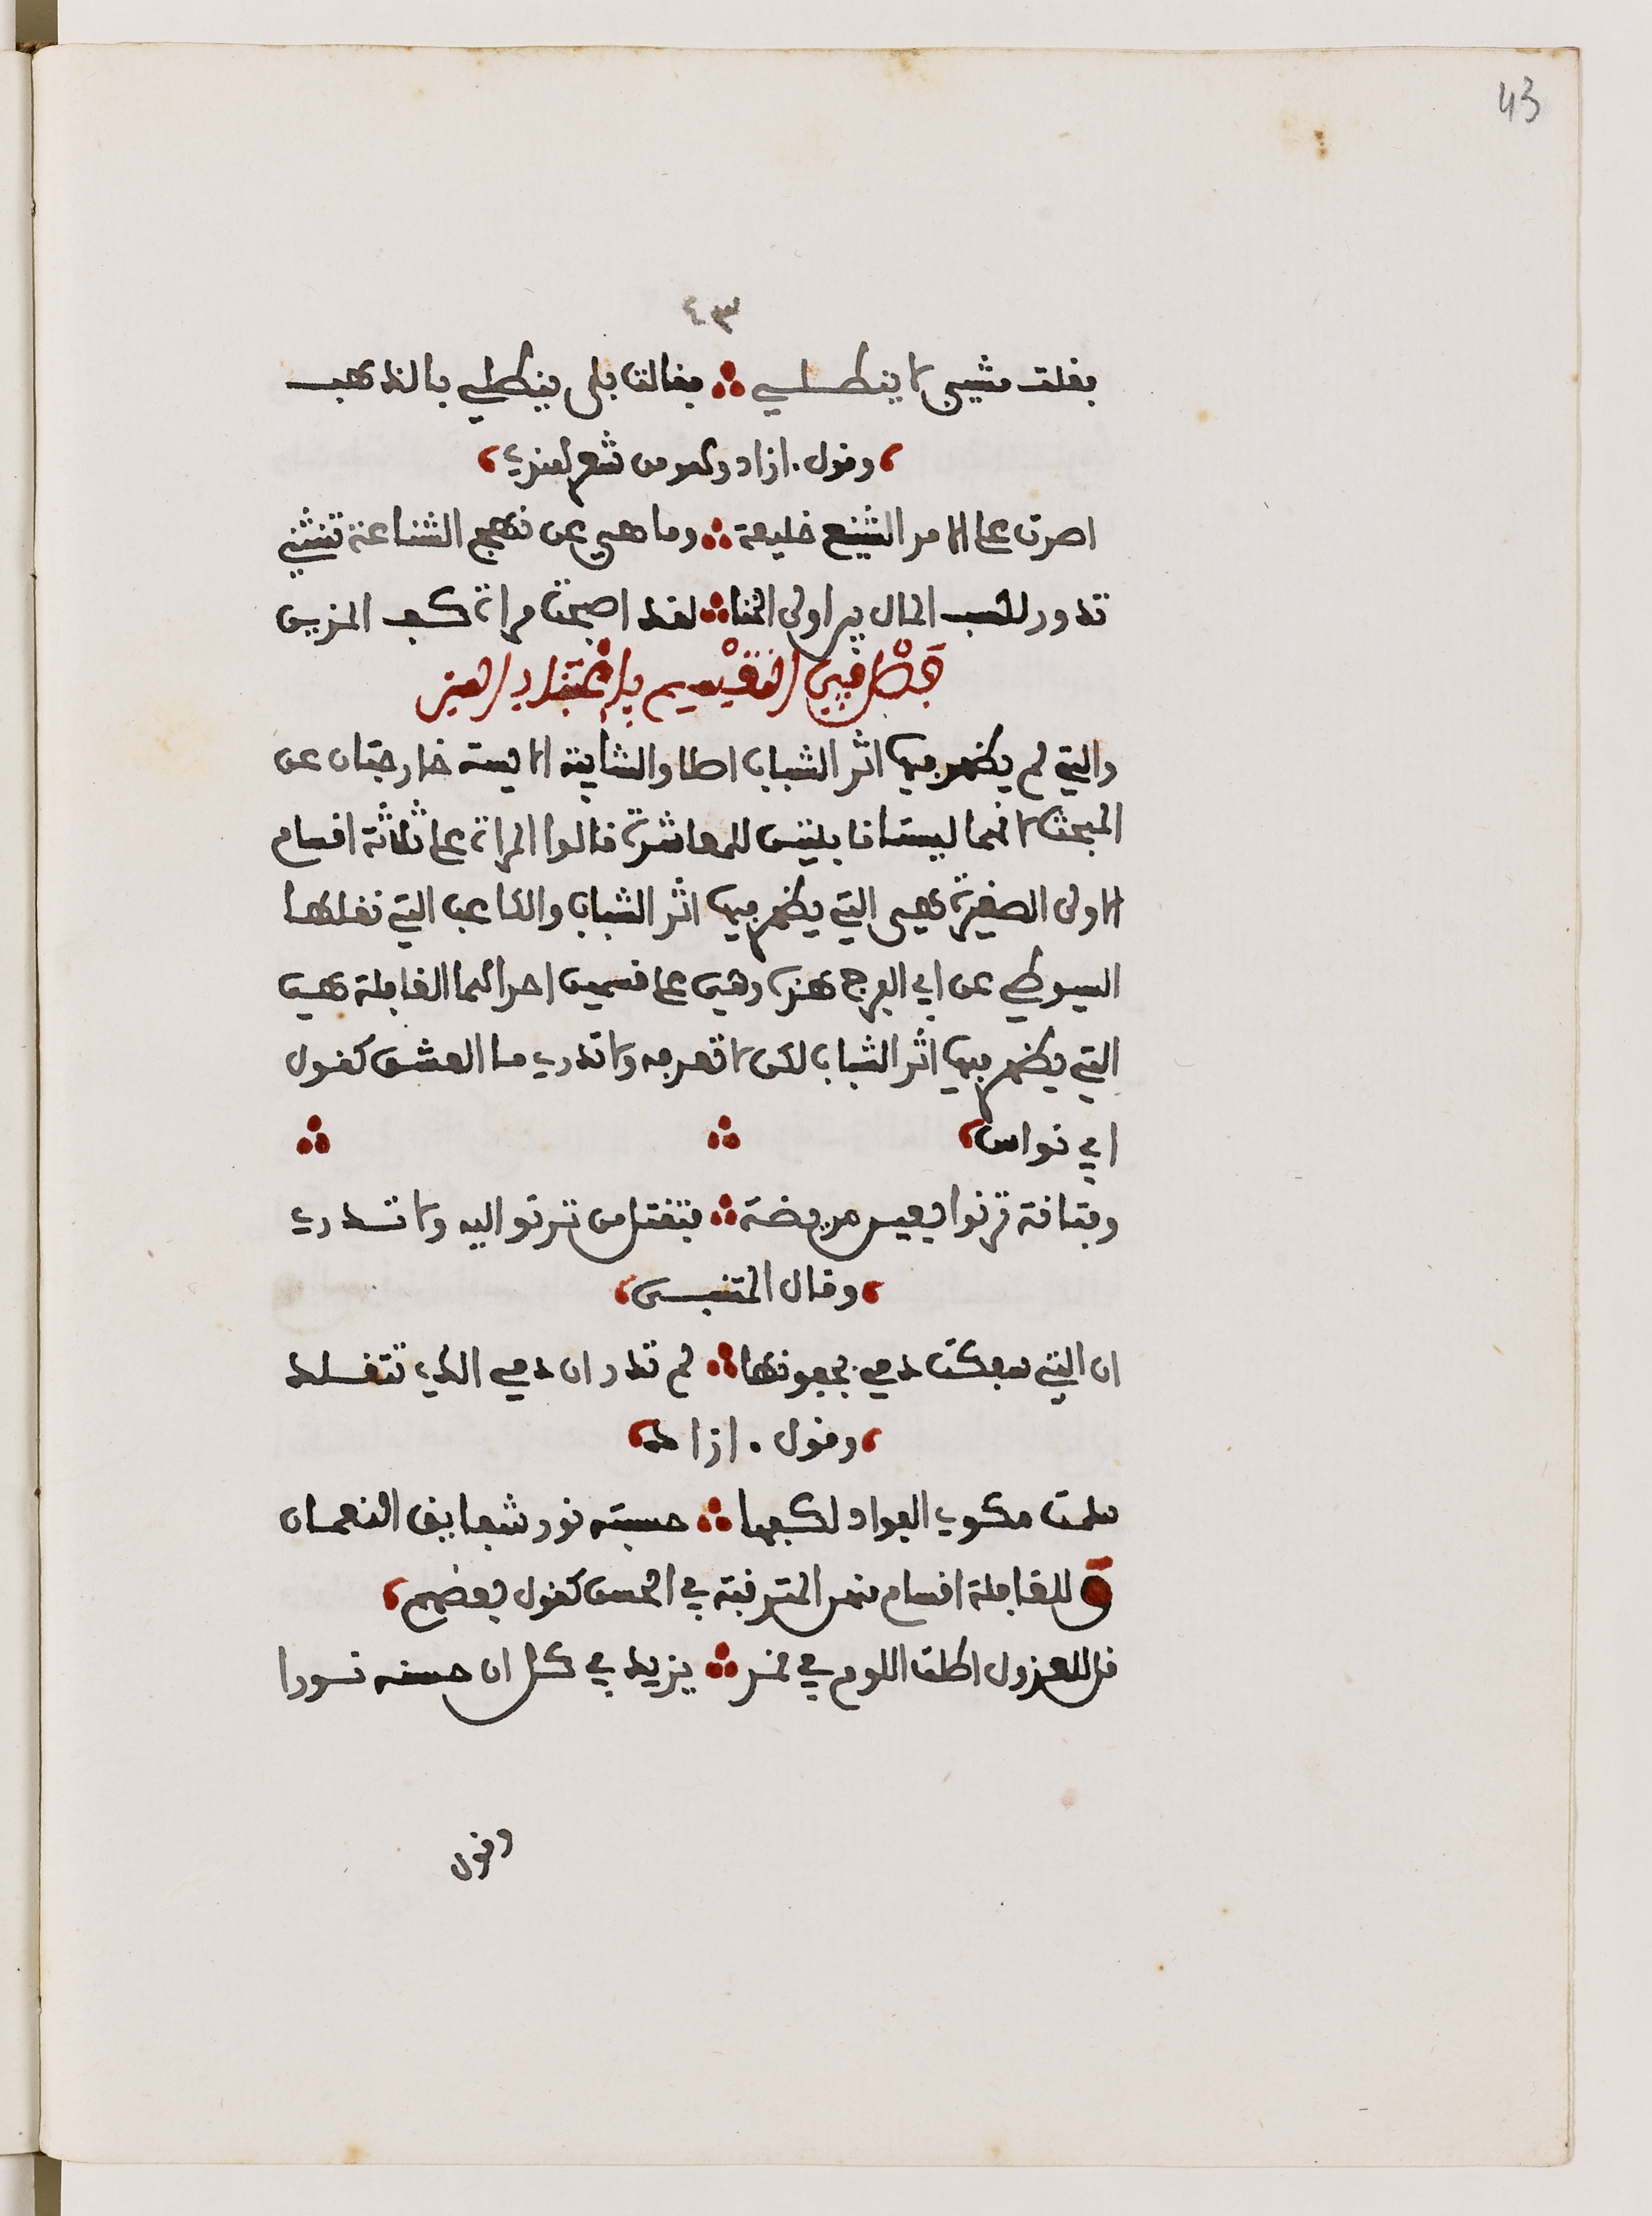 43
٤٣
فقلت مشيبي لا ينطلي ∴ فقالت بلى ينطلي بالذهب
وقول ازاد وهو من شعر لغزي
اصرت على الامر الشنيع خليعة ∴ وما هي عن نهج الشناعة تنثني
تدور لكسب المال بين اولى الخنا ∴ لقد اصبحت مراة كف المزين
فصل في التقسيم باعتبار السن
والتي لم يظهر فيها اثر الشباب اصلا والشايبة الايسة خارجتان عن
المبحث لانهما ليستا قابلتين للمعاشرة قالوا المراة على ثلاثة اقسام
الاولى الصغيرة هي التي يظهر فيها اثر الشباب والكاعب التي نقلها
السيوطي عن ابي الفرج هنا وهي على قسمين احداهما الغافلة هي
التي يظهر فيها اثر الشباب لكن لا تعرفه ولا تدري ما العشق كقول
ابي نواس ∴ ∴
وفتانة ترنوا بعين مريضة ∴ فتقتل من ترنو اليه ولا تدري
وقال المتنبي
ان التي سفكت دمي بجفونها ∴ لم تدر ان دمي الذي تتقلد
وقول ازاد
سلمت مكوي الفواد لكفها ∴ حسبته نور شقايق النعمان
و للغافلة اقسام منهن المترقية في الحسن كقول بعضهم
قل للعذول اطلت اللوم في قمر ∴ يزيد في كل ان حسنه نورا
وقول